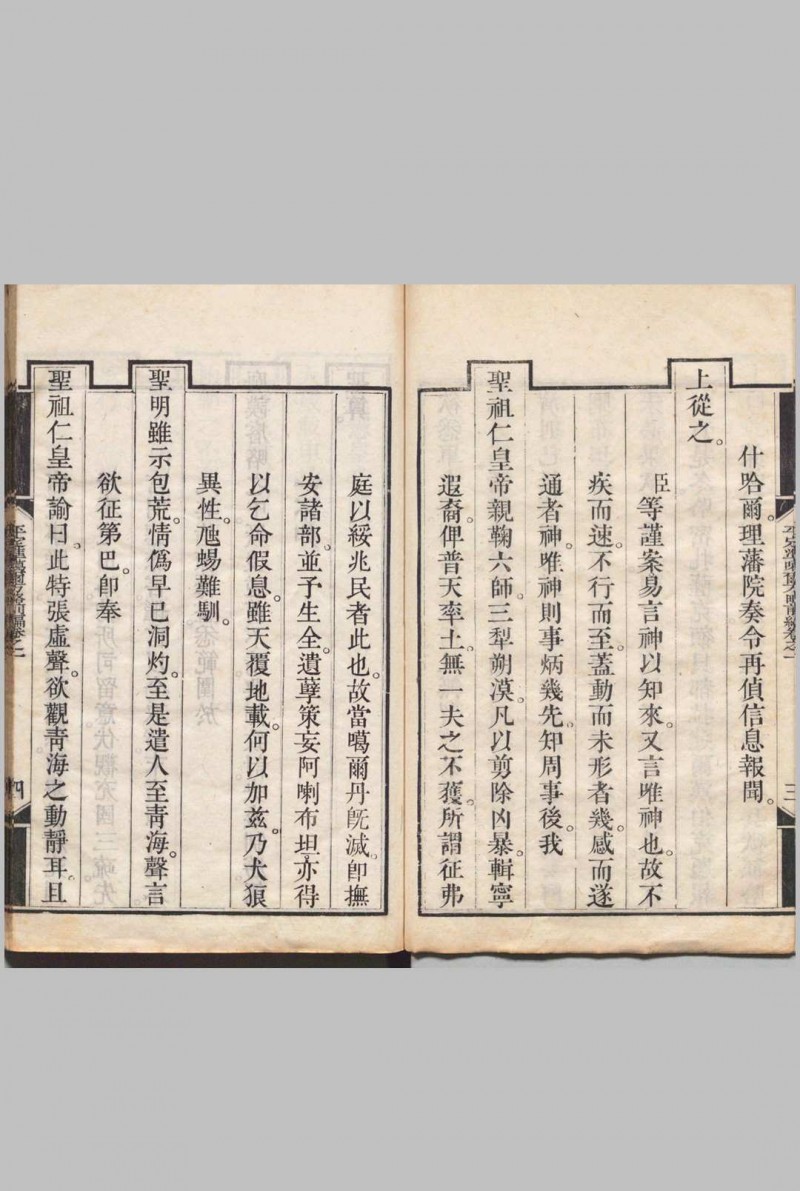 什哈爾。理藩院奏令再偵信息報聞。
上從之。
臣等謹案易言神以知來。又言唯神也。故不
疾而速。不行而至。蓋動而未形者幾。感而遂
通者神。唯神則事炳幾先。知周事後。我
聖祖仁皇帝親鞠六師。三犁朔漠。凡以剪除凶暴。輯寧
遐裔。俾普天率土。無一夫之不獲。所謂征弗
庭以綏兆民者此也。故當噶爾丹旣滅。卽撫
安諸部。並予生全。遺孽策妄阿喇布坦。亦得
以乞命假息。雖天覆地載。何以加茲。乃犬狼
異性。虺蜴難馴。
聖明雖示包荒。情僞早已洞灼。至是遣人至靑海。聲言
欲征第巴。卽奉
聖祖仁皇帝諭曰。此特張虛聲。欲觀靑海之動靜耳。且
三
四